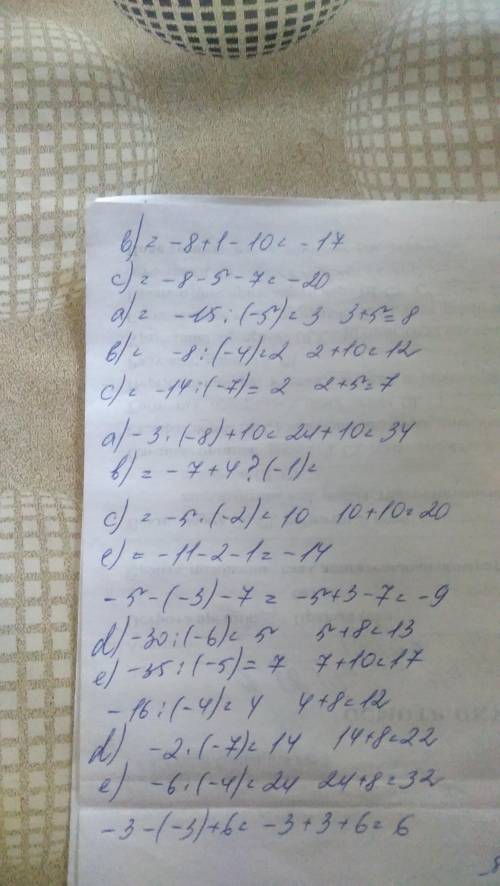 b) = -8+1-10= -17
c) = -8-5-7= -20
a) = -15:(-5)= 3 3+5=8
b) = -8:(-4)=2 2+10=12
c) = -14:(-7)= 2 2+5=7
a) -3·(-8)+10= 24+10=34
b) = -7+4?(-1)=
c) = -5·(-2)= 10 10+10=20
e) = -11-2-1=-14
-5-(-3)-7= -5+3-7= -9
d) -30:(-6)= 5 5+8=13
e) -35:(-5)= 7 7+10=17
-16:(-4)= 4 4+8=12
d) -2·(-7)= 14 14+8=22
e) -6·(-4)=24 24+8=32
-3-(-3)+6= -3+3+6= 6